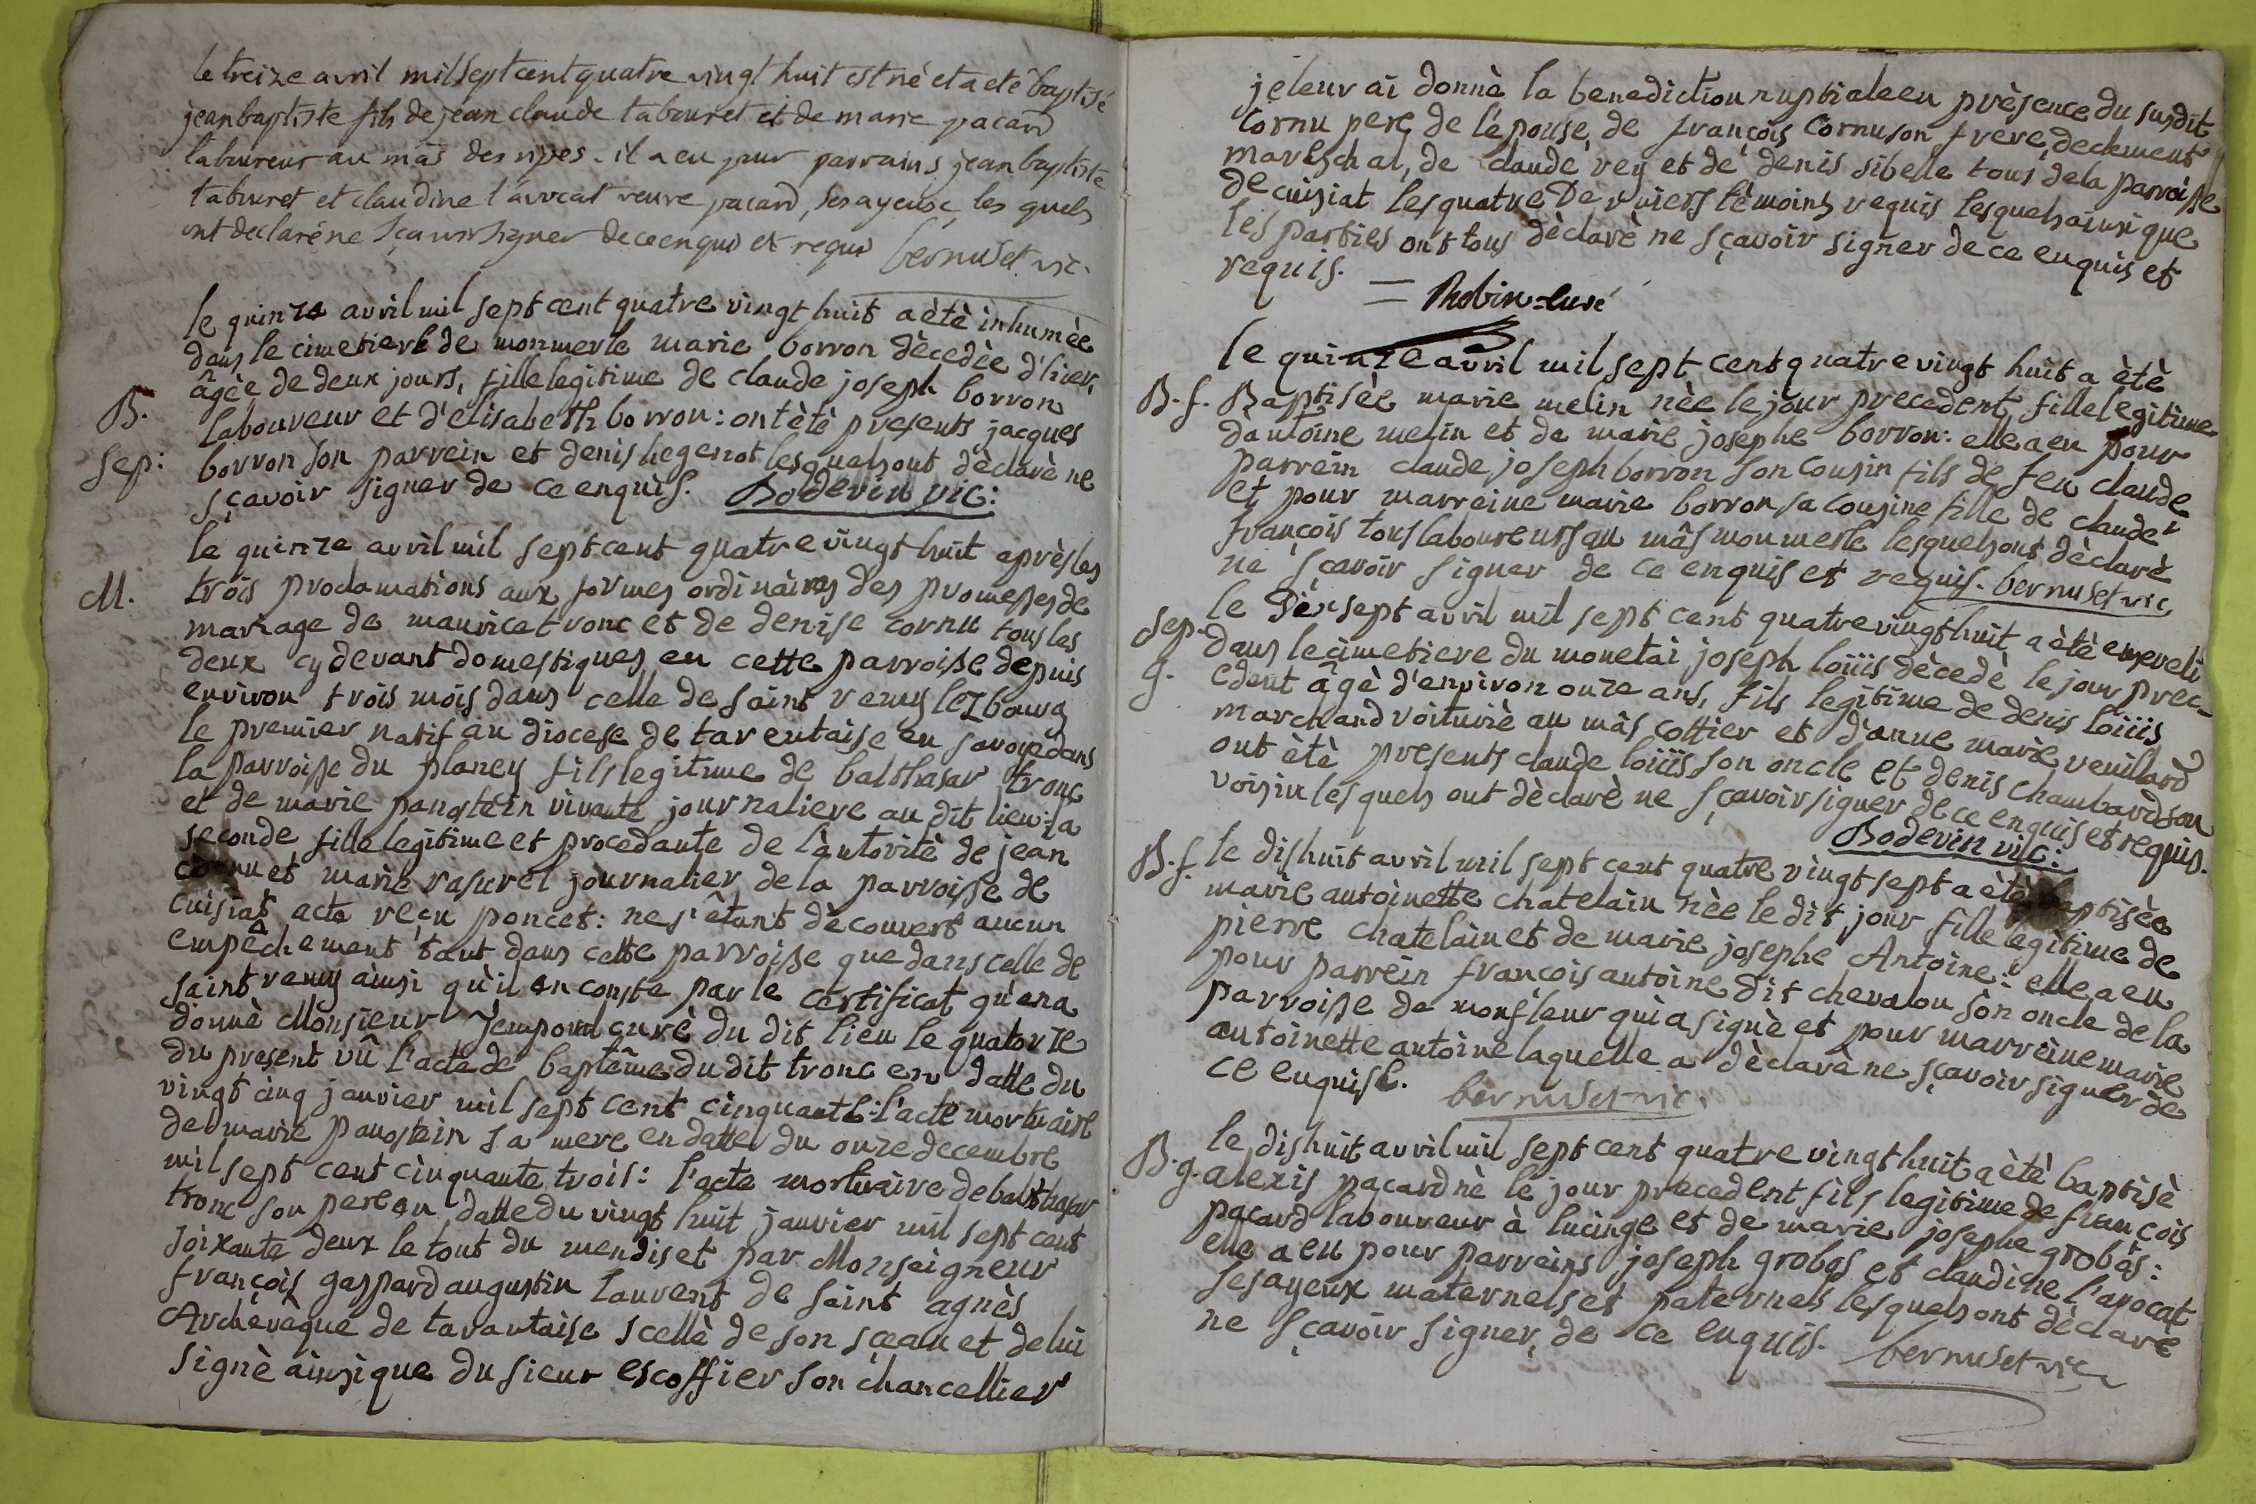 le treize avril mil sept cent quatre vingt huit est né et a eté baptisé
jean baptiste fils de jean claude tabouret et de marie pacard
laboureur au mâs des ripes. il a eu pour parrains jean baptiste
tabouret et claudine l'avocat veuve pacard, ses ayeux, les quels
ont declaré ne sçavoir signer de ce enquis et requis bernuset vic.
le quinze avril mil sept cent quatre vingt huit a ètè inhumèe
dans le cimetiere de monmerle marie borron dècedèe d'hier,
âgèe de deux jours, fille legitime de claude joseph borron
B. laboureur et d'elisabeth borron: ont ètè presents jacques
sep: borron son parrein et denis hegenot lesquels ont dèclarè ne
sçavoir signer de ce enquis. Bodevin vic:
le quinze avril mil sept cent quatre vingt huit après les
M. trois proclamations aux formes ordinaires des promesses de
mariage de maurice tronc et de denise cornu tous les
deux cy devant domestiques en cette parroisse depuis
environ trois mois dans celle de saint remy lez bourg
le premier natif au diocese de tarentaise en savoye dans
la parroisse du planey fils legitime de balthasar tronc
et de marie pangtein vivante journaliere au dit lieu: la
seconde fille legitime et procedante de l'autoritè de jean
cornu et marie rasurel journalier de la parroisse de
cuisiat acte reçu poncet: ne s'êtant dècouvert aucun
empêchement tant dans cette parroisse que dans celle de
saint remy ainsi qu'il en conste par le certificat qu'en a
donnè Monsieur curè du dit lieu le quatorze
du present vû l'acte de baptême du dit tronc en datte du
vingt cinq janvier mil sept cent cinquante: l'acte mortuaire
de marie pangtein sa mere en datte du onze decembre
mil sept cent cinquante trois: l'acte mortuaire de balthasar
tronc son pere en datte du vingt huit janvier mil sept cent
soixante deux le tout du mendiset par Monseigneur
françois gaspard augustin laurent de saint agnès
Archevèque de tarantaise scellè de son sceau et de lui
signè ainsi que du sieur escoffier son chancellier
je leur ai donnè la benediction nuptiale en prèsence du susdit
cornu pere de l'èpouse, de françois cornu son frere, de clement
mareschal, de claude rey et de denis sibelle tous de la parroisse
de cuisiat les quatre derniers tèmoins requis lesquels ainsi que
les parties ont tous dèclarè ne sçavoir signer de ce enquis et
requis. = Robin = curé
le quinze avril mil sept cent quatre vingt huit a ètè
B. f. Baptisèe marie melin nèe le jour precedent fille legitime
d'antoine melin et de marie josephe borron: elle a eu pour
parrein claude joseph borron son cousin fils de feu claude
et pour marreine marie borron sa cousine fille de claude
françois tous laboureurs au mâs monmerle lesquels ont dèclarè
ne sçavoir signer de ce enquis et requis. bernuset vic,
le dèxsept avril mil sept cent quatre vingt huit a ètè enseveli
Sep. dans le cimetiere du monetai joseph loüis dècedè le jour prec-
g. edent âgè d'environ onze ans, fils legitime de denis loüis
marchand voituriè au mâs cottier et d'anne marie veuillard
ont ètè presents claude loüis son oncle et denis chambard son
voisin lesquels ont dèclarè ne sçavoir signer de ce enquis et requis.
Bodevin vic:
B. f. le dishuit avril mil sept cent quatre vingt sept a ètè baptisèe
marie antoinette chatelain nèe le dit jour fille legitime de
pierre chatelain et de marie josephe Antoine: elle a eu
pour parrein françois antoine dit chevalon son oncle de la
parroisse de monfleur qui a signè et pour marreine marie
antoinette antoine laquelle a dèclarè ne sçavoir signer de
ce enquise. bernuset vic.
le dishuit avril mil sept cent quatre vingt huit a ètè baptisè
B. g. alexis pacard nè le jour precedent fils legitime de françois
pacard laboureur à lucinge et de marie josephe grobas:
elle a eu pour parreins joseph grobas et claudine l'avocat
ses ayeux maternels et paternels lesquels ont dèclarè
ne sçavoir signer, de ce enquis. bernuset vic